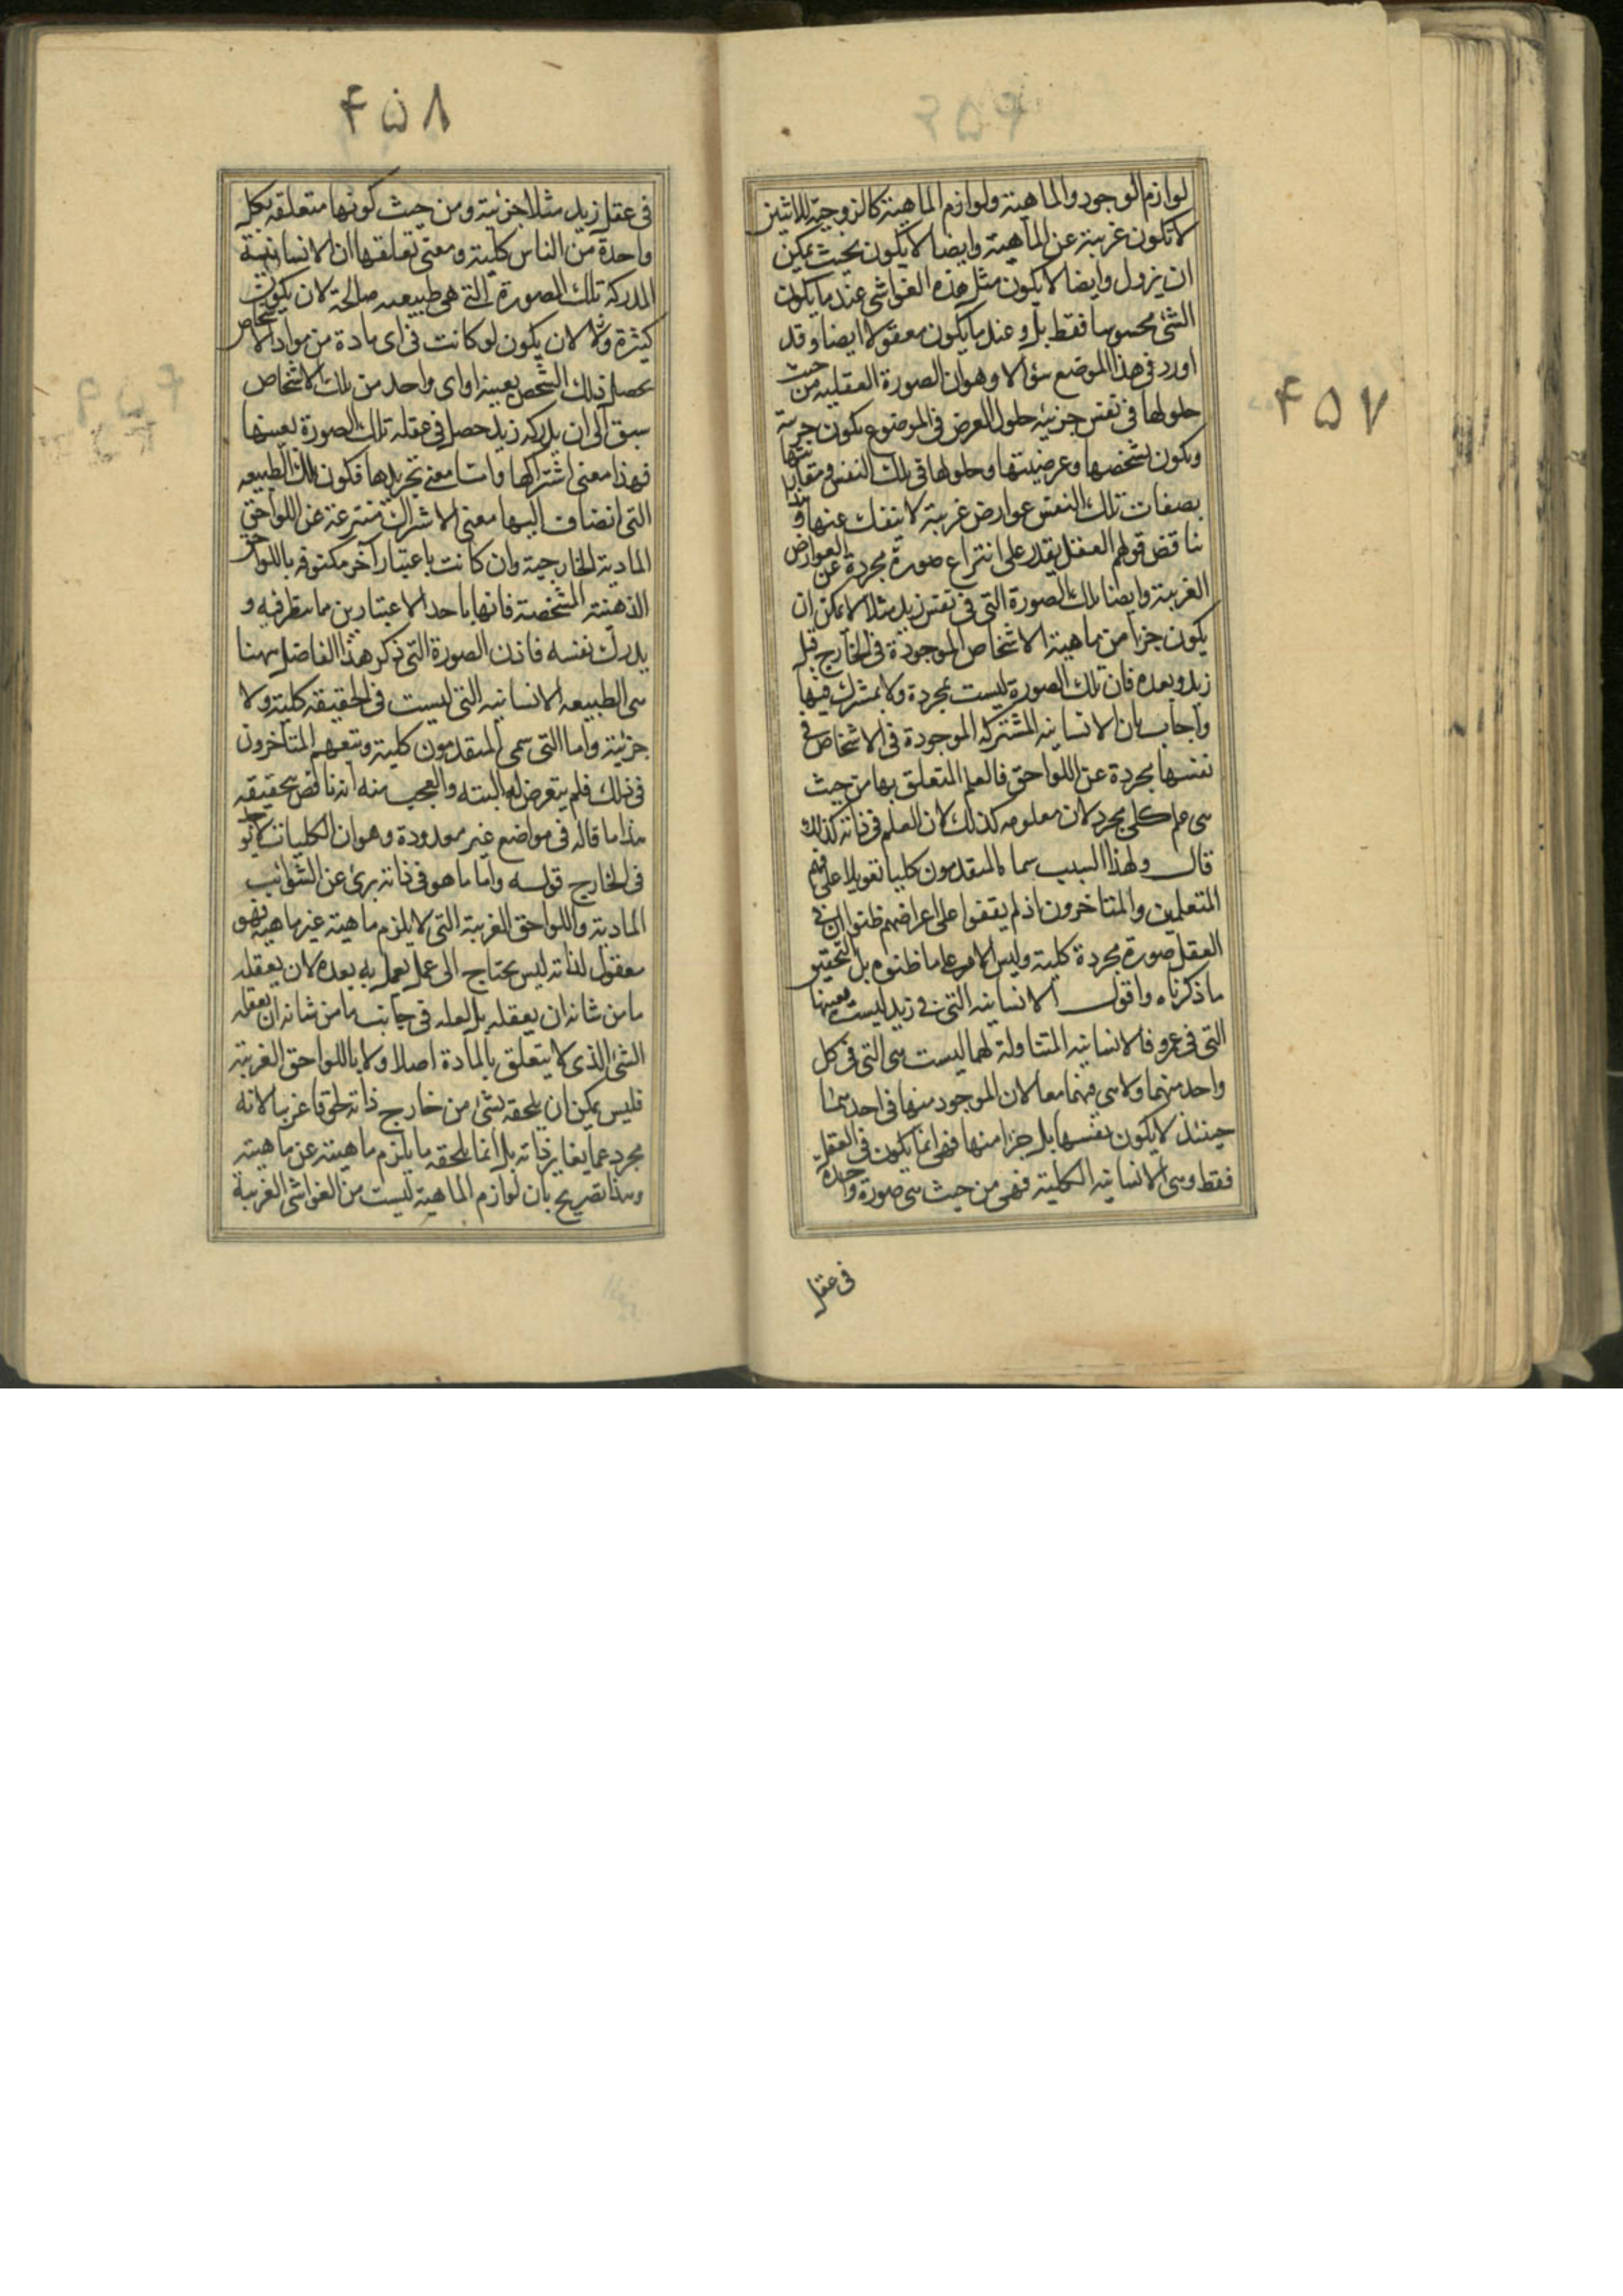 ۴۵۷
لوازم الوجود والماهية ولوازم الماهية كالزوجية للاثنين
لا تكون غريبة عن الماهية وايضا لا يكون بحيث يمكن
ان يزول وايضا لا يكون مثل هذه الغواشي عند ما يكون
الشئ محسوسا فقط بل وعند ما يكون معقولا ايضا وقد
اورد في هذا الموضع سؤالا وهو ان الصورة العقلية من حيث
حلولها في نفس جزئيه حلول العرض في الموضوع يكون جزئية
ويكون تشخصها وعرضيتها وحلولها في تلك النفس ومقارنتها
بصفات تلك النفس عوارض غريبة لا ينفك عنها وهذا
يناقض قولهم العقل يقدر على انتزاع صورة مجردة عن العوارض
الغريبة وايضا تلك الصورة التي في نفس زيد مثلا لا يمكن ان
يكون جزأ من ماهية الاشخاص الموجودة في الخارج قبل
زيد وبعده فان تلك الصورة ليست بمجردة ولا بمشترك فيها
واجاب بان الانسانيه المشتركه الموجودة في الاشخاص في
نفسها مجردة عن اللواحق فالعلم المتعلق بها من حيث
هى علم كلى مجرد لان معلومه كذلك لان العلم في ذاته كذلك
قال ولهذا السبب سماه المتقدمون كليا تعويلا على فهم
المتعلمين والمتاخرون اذ لم يقفوا على اغراضهم ظنوا ان في
العقل صورة مجردة كلية وليس الامر على ما ظنوه بل التحقيق
ما ذكرناه واقول الانسانيه التي في زيد ليست بعينها
التي في عمرو فالانسانيه المتناولة لهما ليست هى التي في كل
واحد منهما ولا هى فيهما معا لان الموجود منها في احدهما
حينئذ لا يكون نفسها بل جزأ منها فهى انما يكون في العقل
فقط وهى الانسانيه الكلية فهى من حيث هى صورة واحدة
في عقل
۴۵۸
في عقل زيد مثلا جزئية ومن حيث كونها متعلقه بكل
واحدة من الناس كلية ومعنى تعلقها ان الانسانية
المدركة تلك الصورة التي هى طبيعيه صالحة لان يكون
كثيرة ولا لان يكون لو كانت في اى مادة من مواد الاشخاص
يحصل ذلك الشخص بعينه او اى واحد من تلك الاشخاص
سبق الى ان يدركه زيد حصل في عقله تلك الصورة بعينها
فهذا معنى اشتراكها واما معنى تجريدها فكون تلك الطبيعه
التي انضاف اليها معنى الاشتراك منتزعة عن اللواحق
المادية الخارجية وان كانت باعتبار آخر مكنوفه باللواحق
الذهنية المشخصة فانها باحد الاعتبارين مما ينظر فيه و
يدرك نفسه فاذن الصورة التي ذكر هذا الفاضل ههنا
هى الطبيعه الانسانيه التي ليست في الحقيقه كلية ولا
جزئية واما التي سمى المتقدمون كلية وتبعهم المتاخرون
في ذلك فلم يتعرض لها البتة والعجب منه انه ناقض بتحقيقه
هذا ما قاله في مواضع غير معدودة وهو ان الكليات لا توجد
في الخارج قوله واما ما هو في ذاته برئ عن الشوائب
المادية واللواحق الغريبة التي لا يلزم ماهيته عن ماهيته فهو
معقول لذاته ليس يحتاج الى عمل يعمل به يعده لان يعقله
ما من شانه ان يعقله بل لعله في جانب ما من شانه ان يعقله
الشئ الذى لا يتعلق بالمادة اصلا ولا باللواحق الغريبة
فليس يمكن ان يلحقه شئ من خارج ذاته لحوقا غريبا لانه
مجرد عما يغاير ذاته بل انما يلحقه ما يلزم ماهيته عن ماهيته
وهذا تصريح بان لوازم الماهية ليست من الغواشي الغريبة